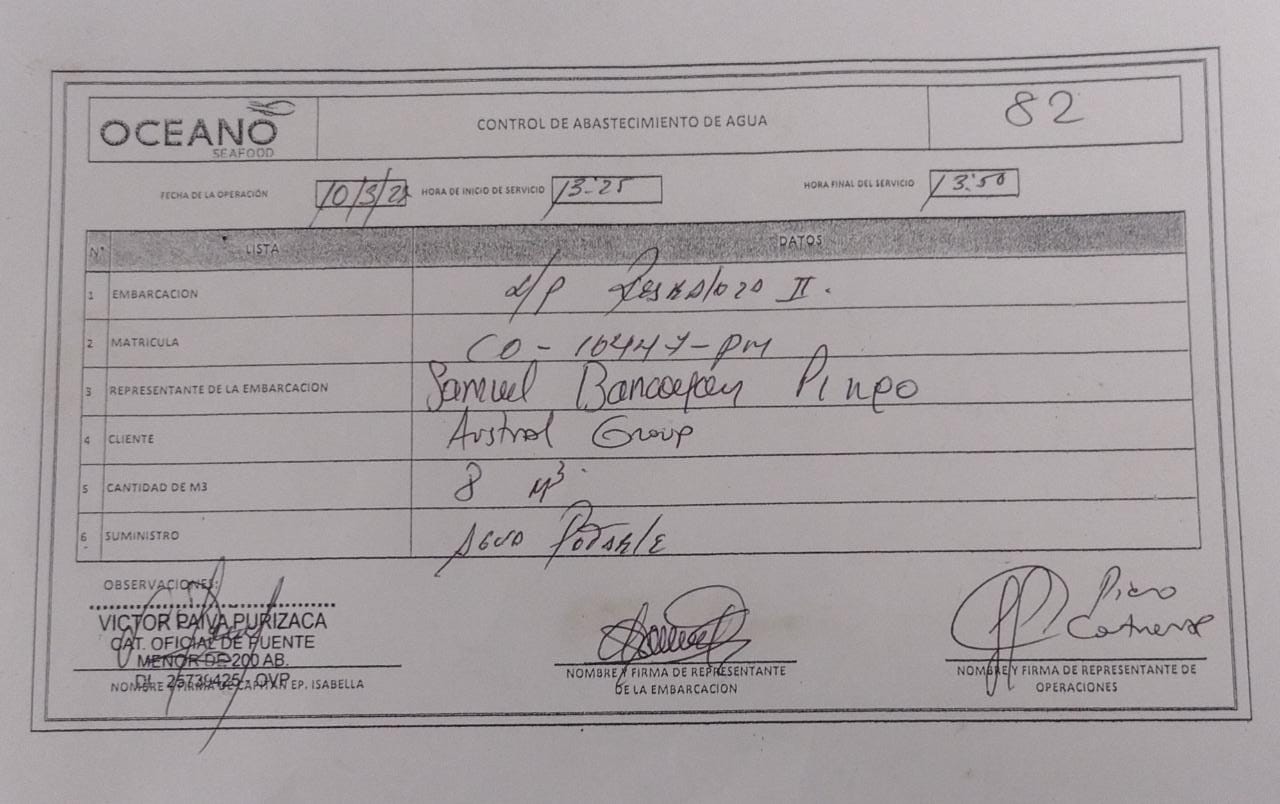 OCEANO
SEAFOOD
CONTROL DE ABASTECIMIENTO DE AGUA
82
FECHA DE LA OPERACIÓN 10/3/2 HORA DE INICIO DE SERVICIO 13:25 HORA FINAL DEL SERVICIO 13:50
N° LISTA DATOS
1 EMBARCACION II.
2 MATRICULA CO-10447-PM
3 REPRESENTANTE DE LA EMBARCACION Samuel
4 CLIENTE Austral Group
5 CANTIDAD DE M3 8 M³
6 SUMINISTRO Agua Potable
OBSERVACIONES:
VICTOR PAIVA PURIZACA
CAT. OFICIAL DE PUENTE
MENOR DE 200 AB.
DI. OVP
NOMBRE Y FIRMA DE CAPITAN EP. ISABELLA
NOMBRE Y FIRMA DE REPRESENTANTE
DE LA EMBARCACION
Piero
NOMBRE Y FIRMA DE REPRESENTANTE DE
OPERACIONES